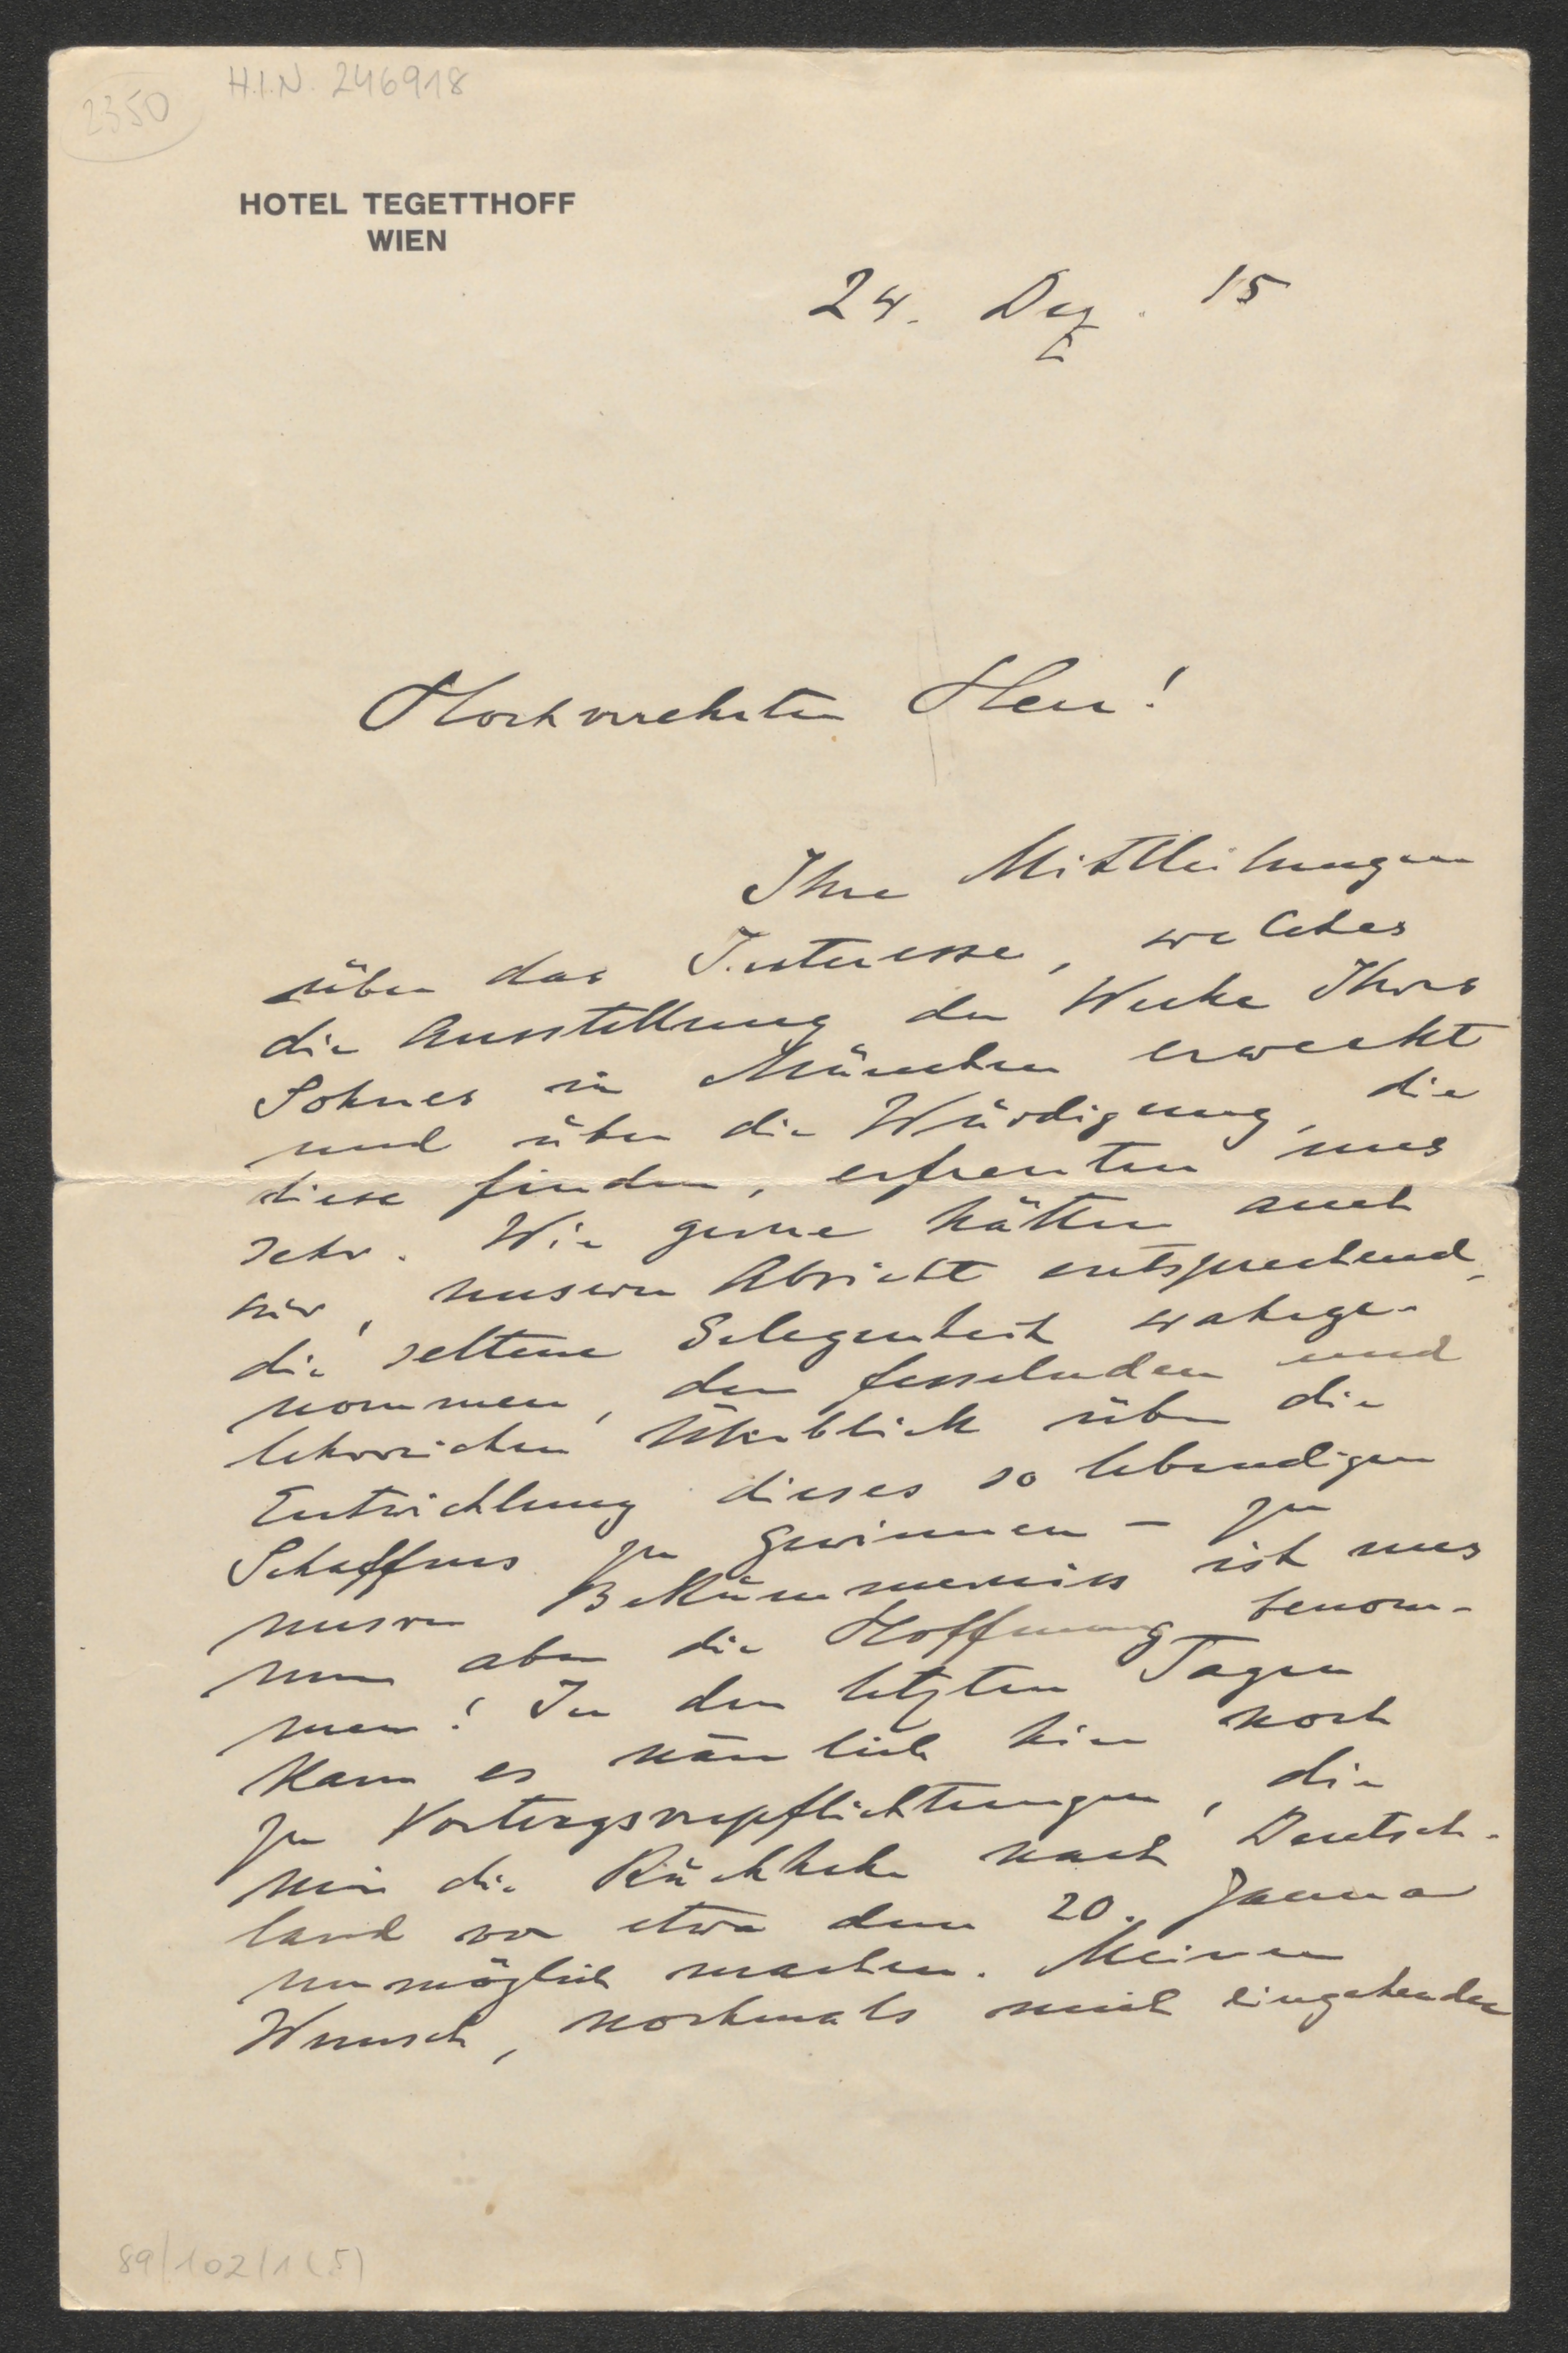 2350
H.I.N. 246918
HOTEL TEGETTHOFF
WIEN
24. Dez. 15
Hochverehrter Herr!
Ihre Mittheilungen
über das Interesse, welches
die Ausstellung der Werke Ihres
Sohnes in München erweckt
und über die Würdigung, die
diese finden, erfreuten uns
sehr. Wie gerne hätten auch
wir, unserer Absicht entsprechend,
die seltene Gelegenheit wahrge-
nommen, den fesselnden und
lehrreichen Überblick über die
Entwicklung dieses so lebendigen
Schaffens zu gewinnen – zu
unserer Bekümmerniss ist uns
nun aber die Hoffnung benom-
men! In den letzten Tagen
kam es nämlich hier noch
zu Vortragsverpflichtungen, die
mir die Rückkehr nach Deutsch-
land vor etwa dem 20. Januar
unmöglich machen. Meinen
Wunsch, nochmals mich eingehender
89/102/1(5)